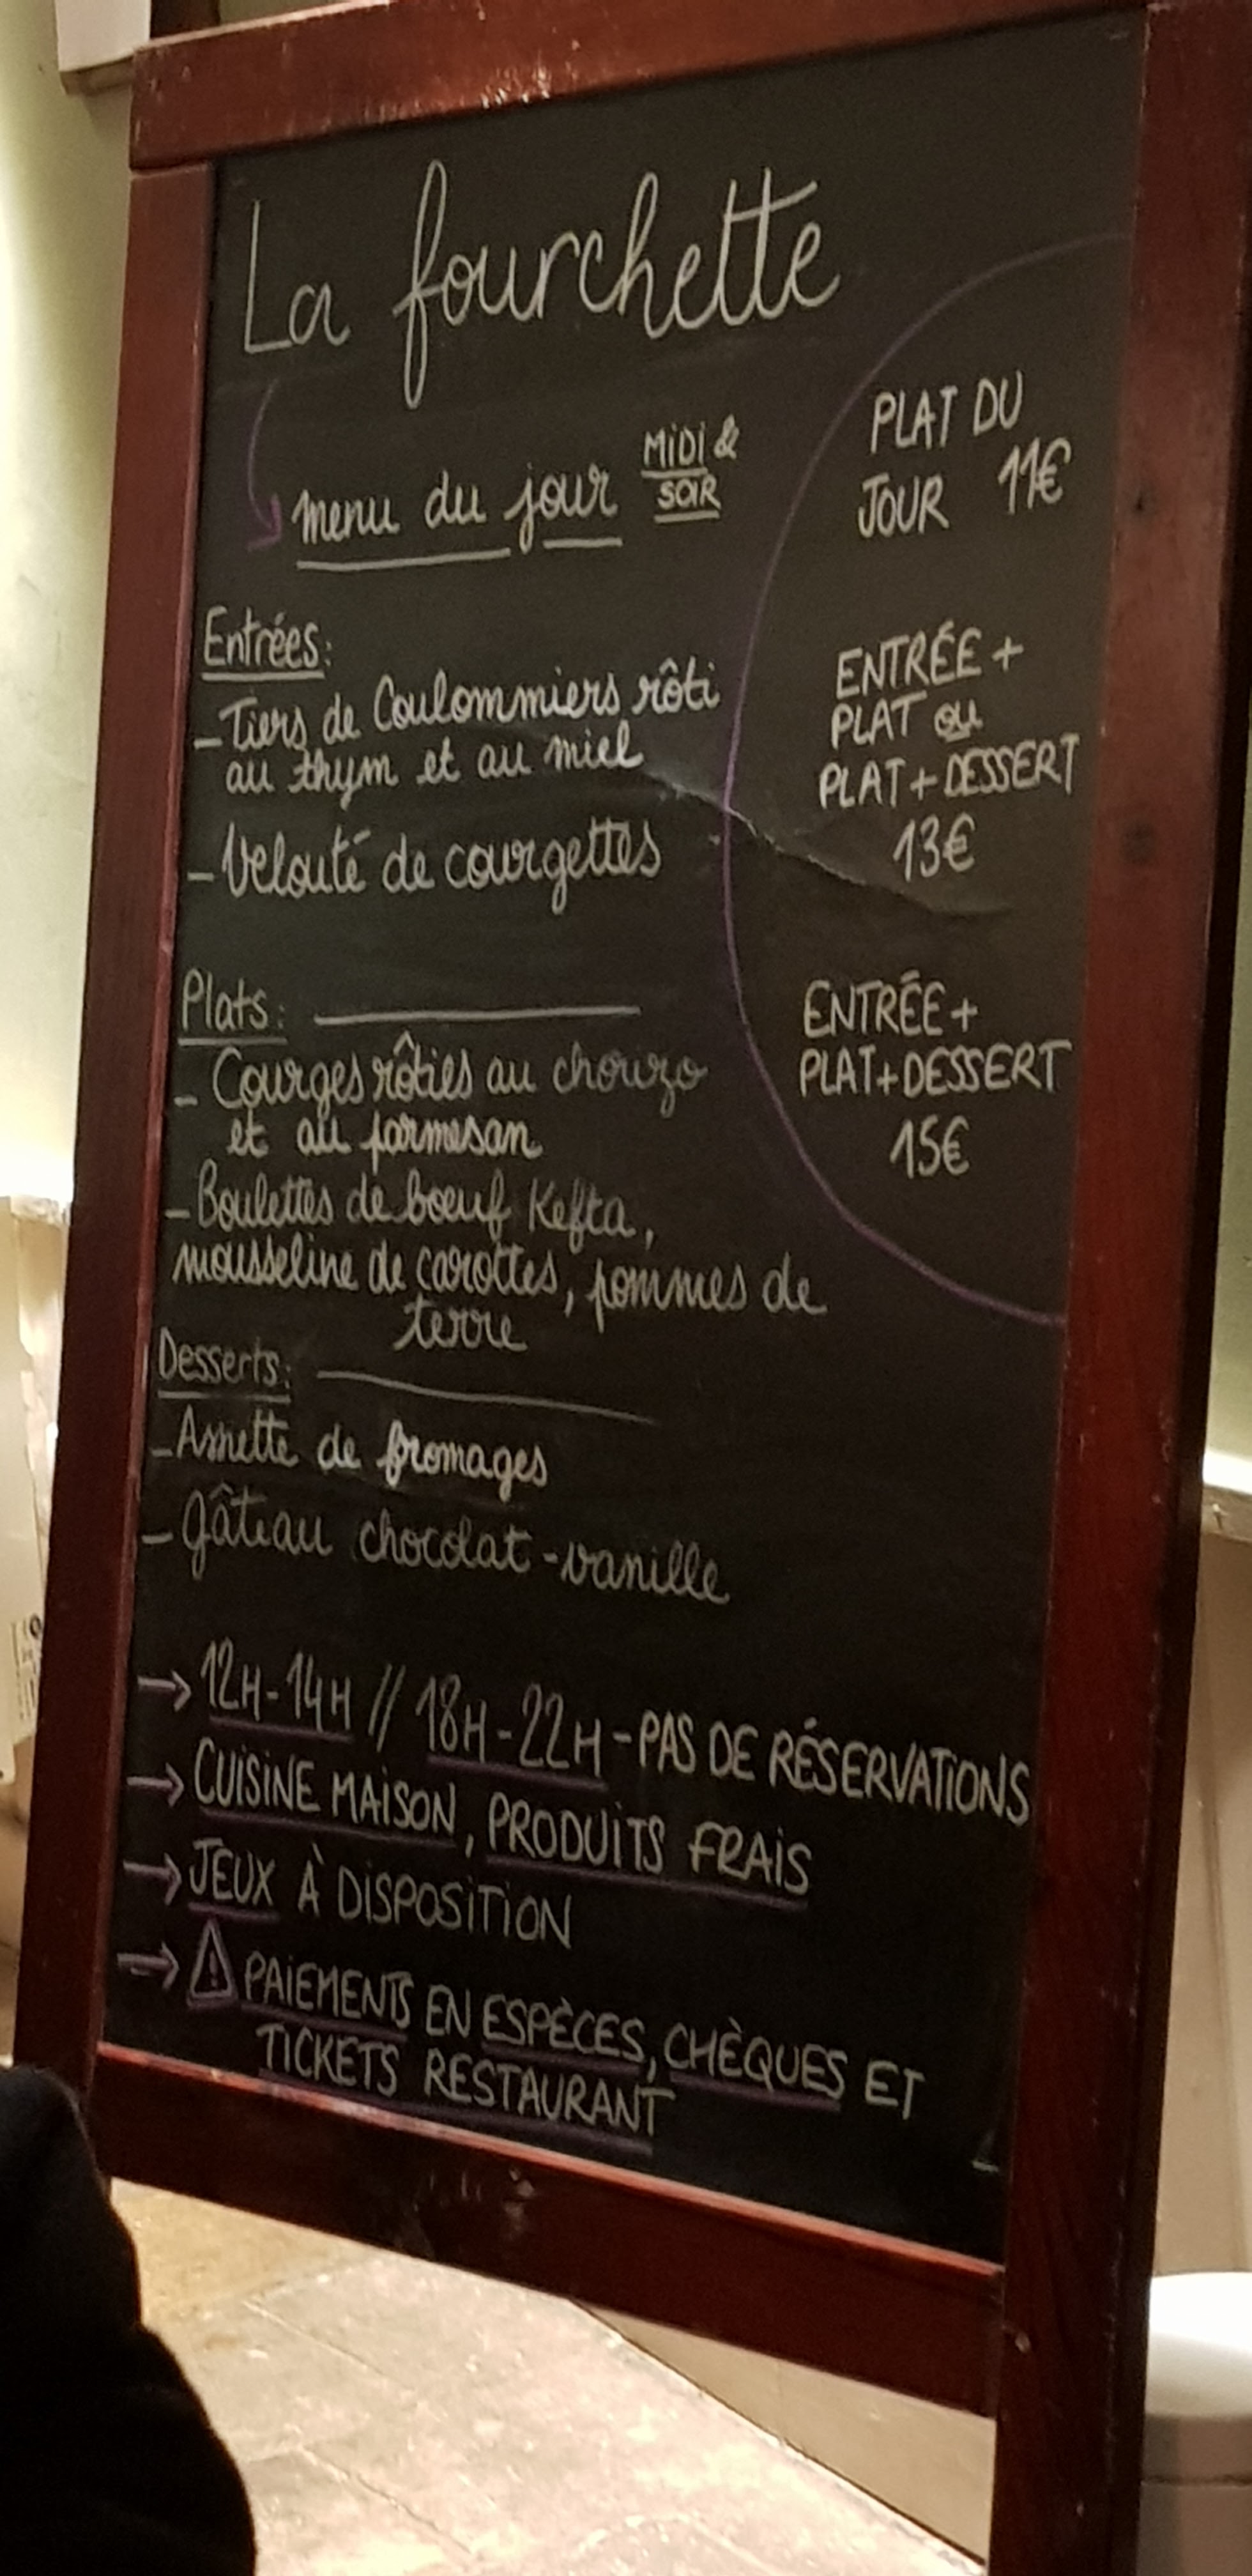 La fourchette
menu du jour MiDi &
SOIR
Entrées:
- Tiers de Coulommiers rôti
au thym et au miel
- Velouté de courgettes
Plats:
- Courges rôties au chorizo
et au parmesan
- Boulettes de boeuf Kefta,
mousseline de carottes, pommes de
terre
Desserts:
- Assiette de fromages
- Gâteau chocolat-vanille
PLAT DU
JOUR 11€
ENTRÉE +
PLAT ou
PLAT + DESSERT
13€
ENTRÉE +
PLAT + DESSERT
15€
→ 12H-14H // 18H-22H - PAS DE RÉSERVATIONS
→ CUISINE MAISON, PRODUITS FRAIS
→ JEUX À DISPOSITION
→ ⚠ PAIEMENTS EN ESPÈCES, CHÈQUES ET
TICKETS RESTAURANT